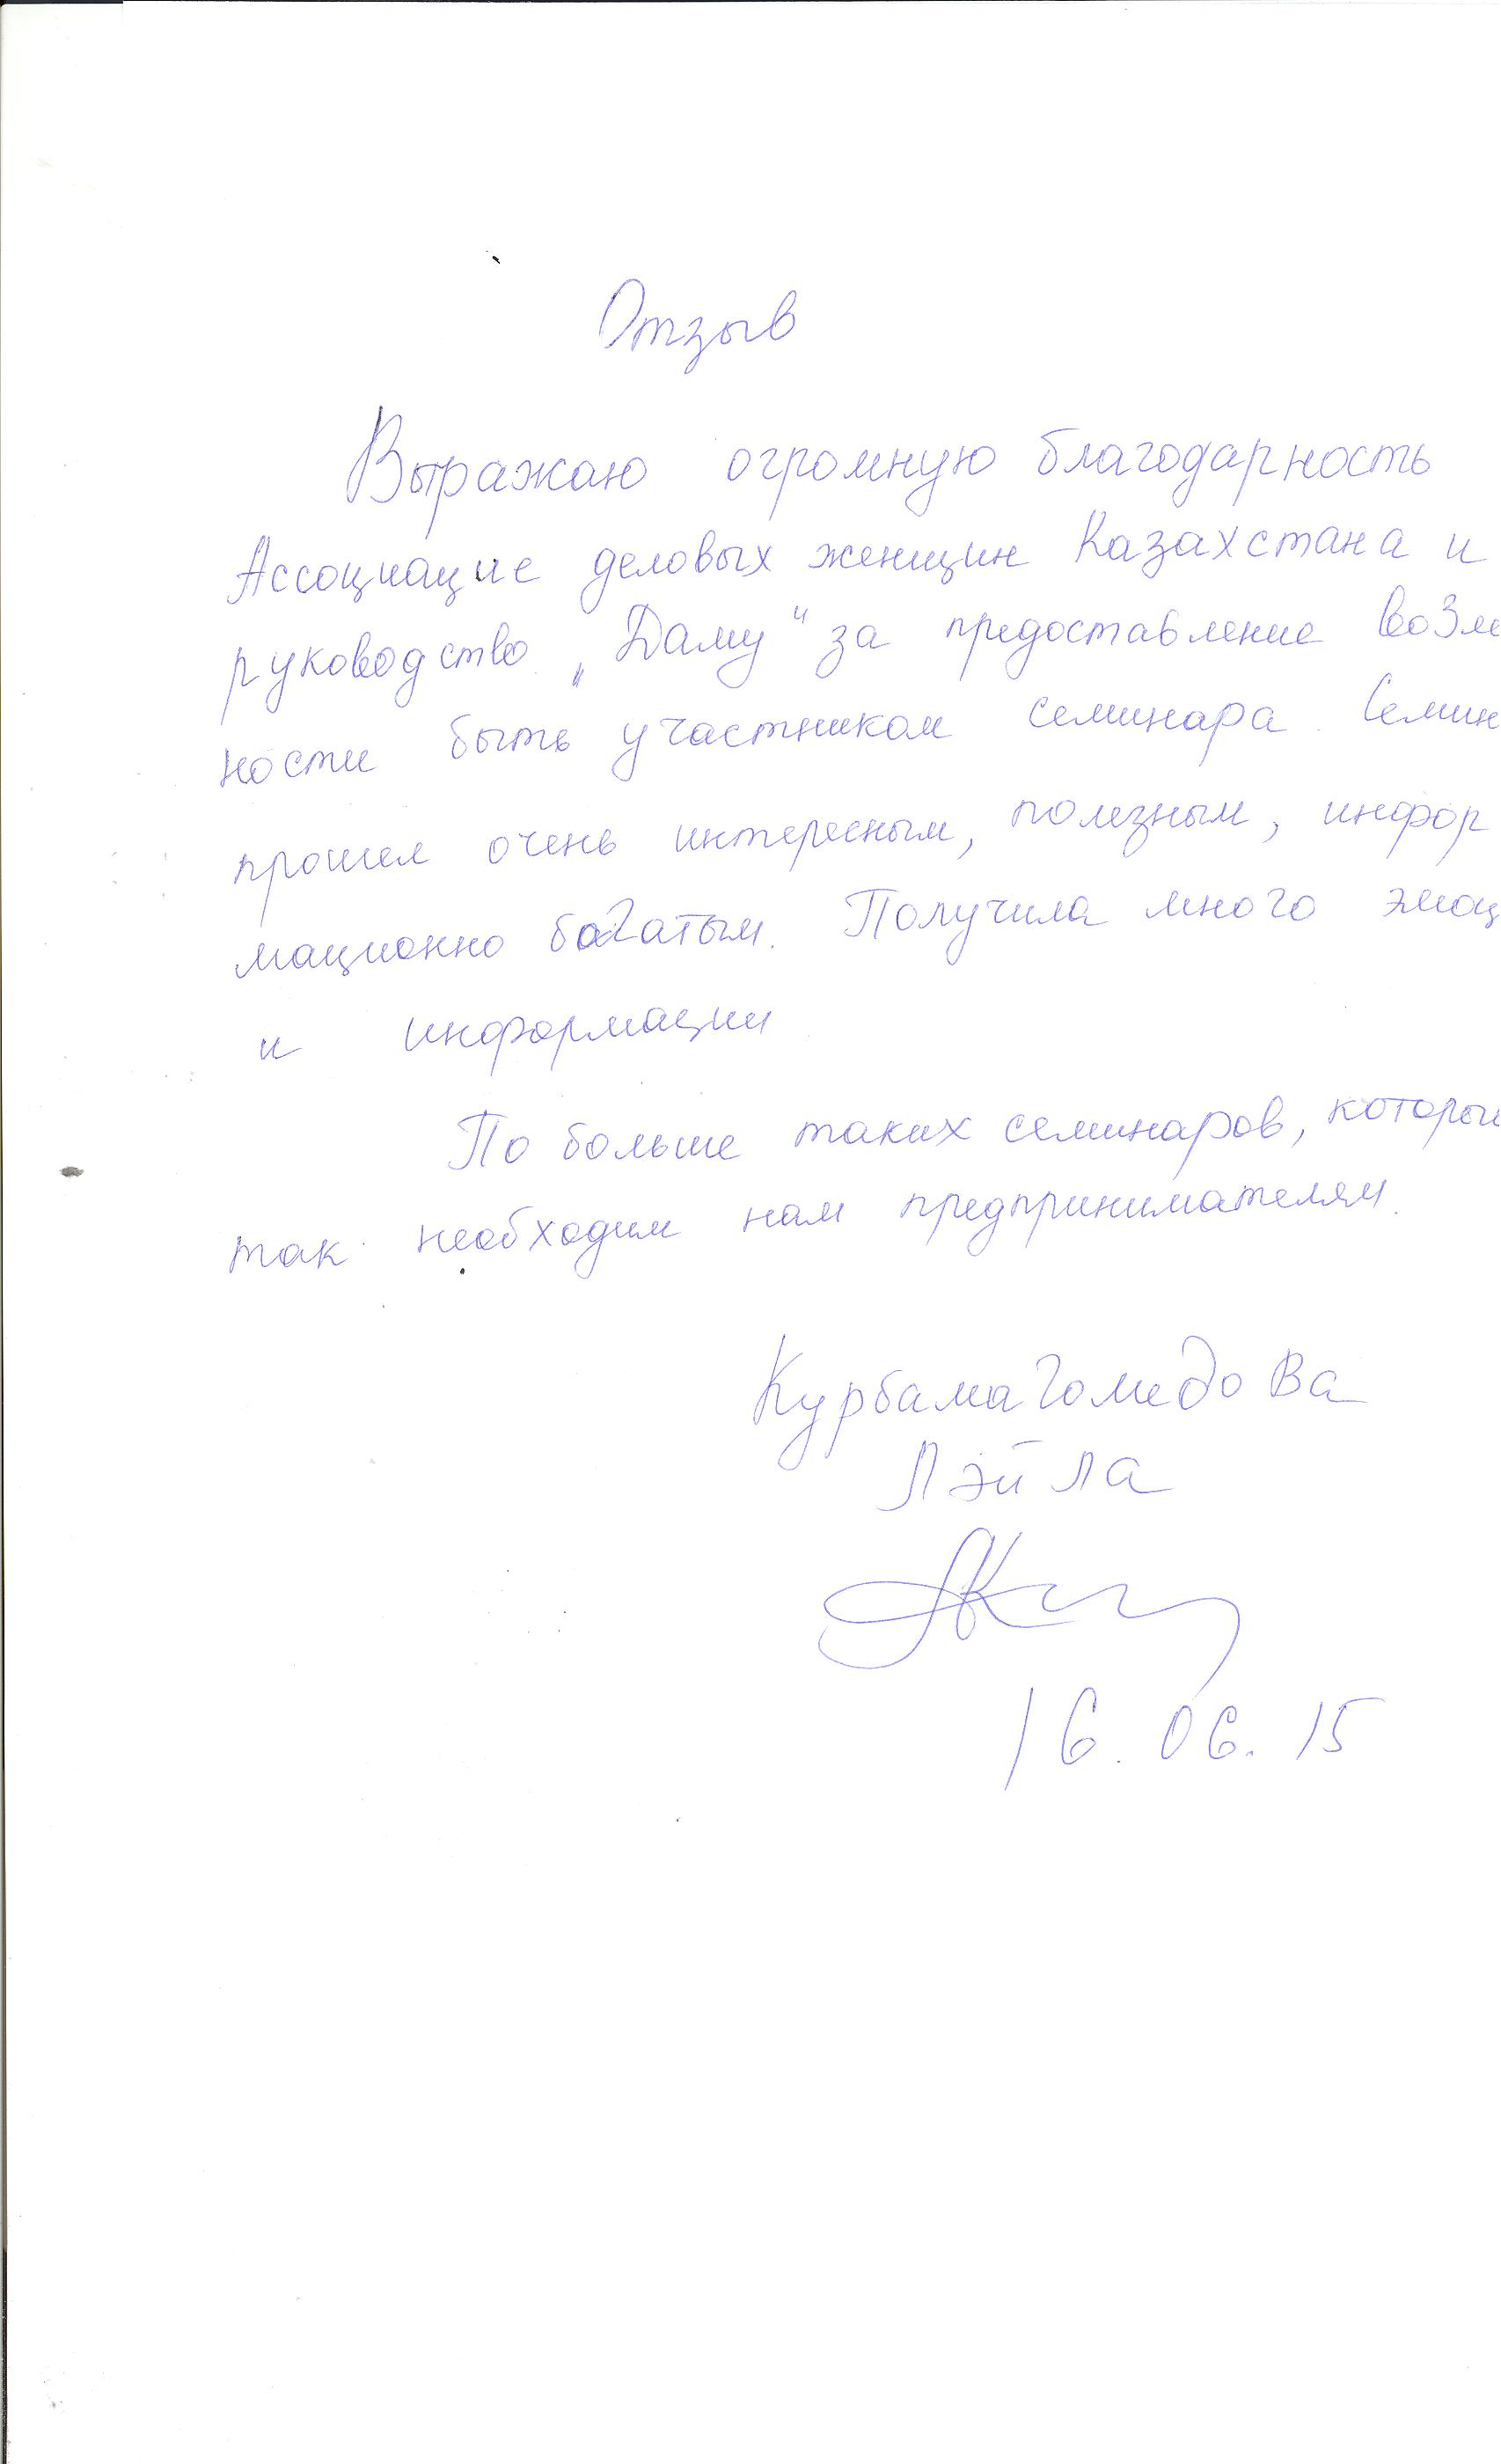 Отзыв
Выражаю огромную благодарность
Ассоциацие деловых женщин Казахстана и
руководство „Даму“ за предоставление возм
ности быть участником семинара. Семин
прошел очень интересным, полезным, инфор
мационно богатым. Получила много эмоц
и информации
По больше таких семинаров, которы
так необходим нам предпринимателям.
Курбамагомедова
Лэйла
16.06.15